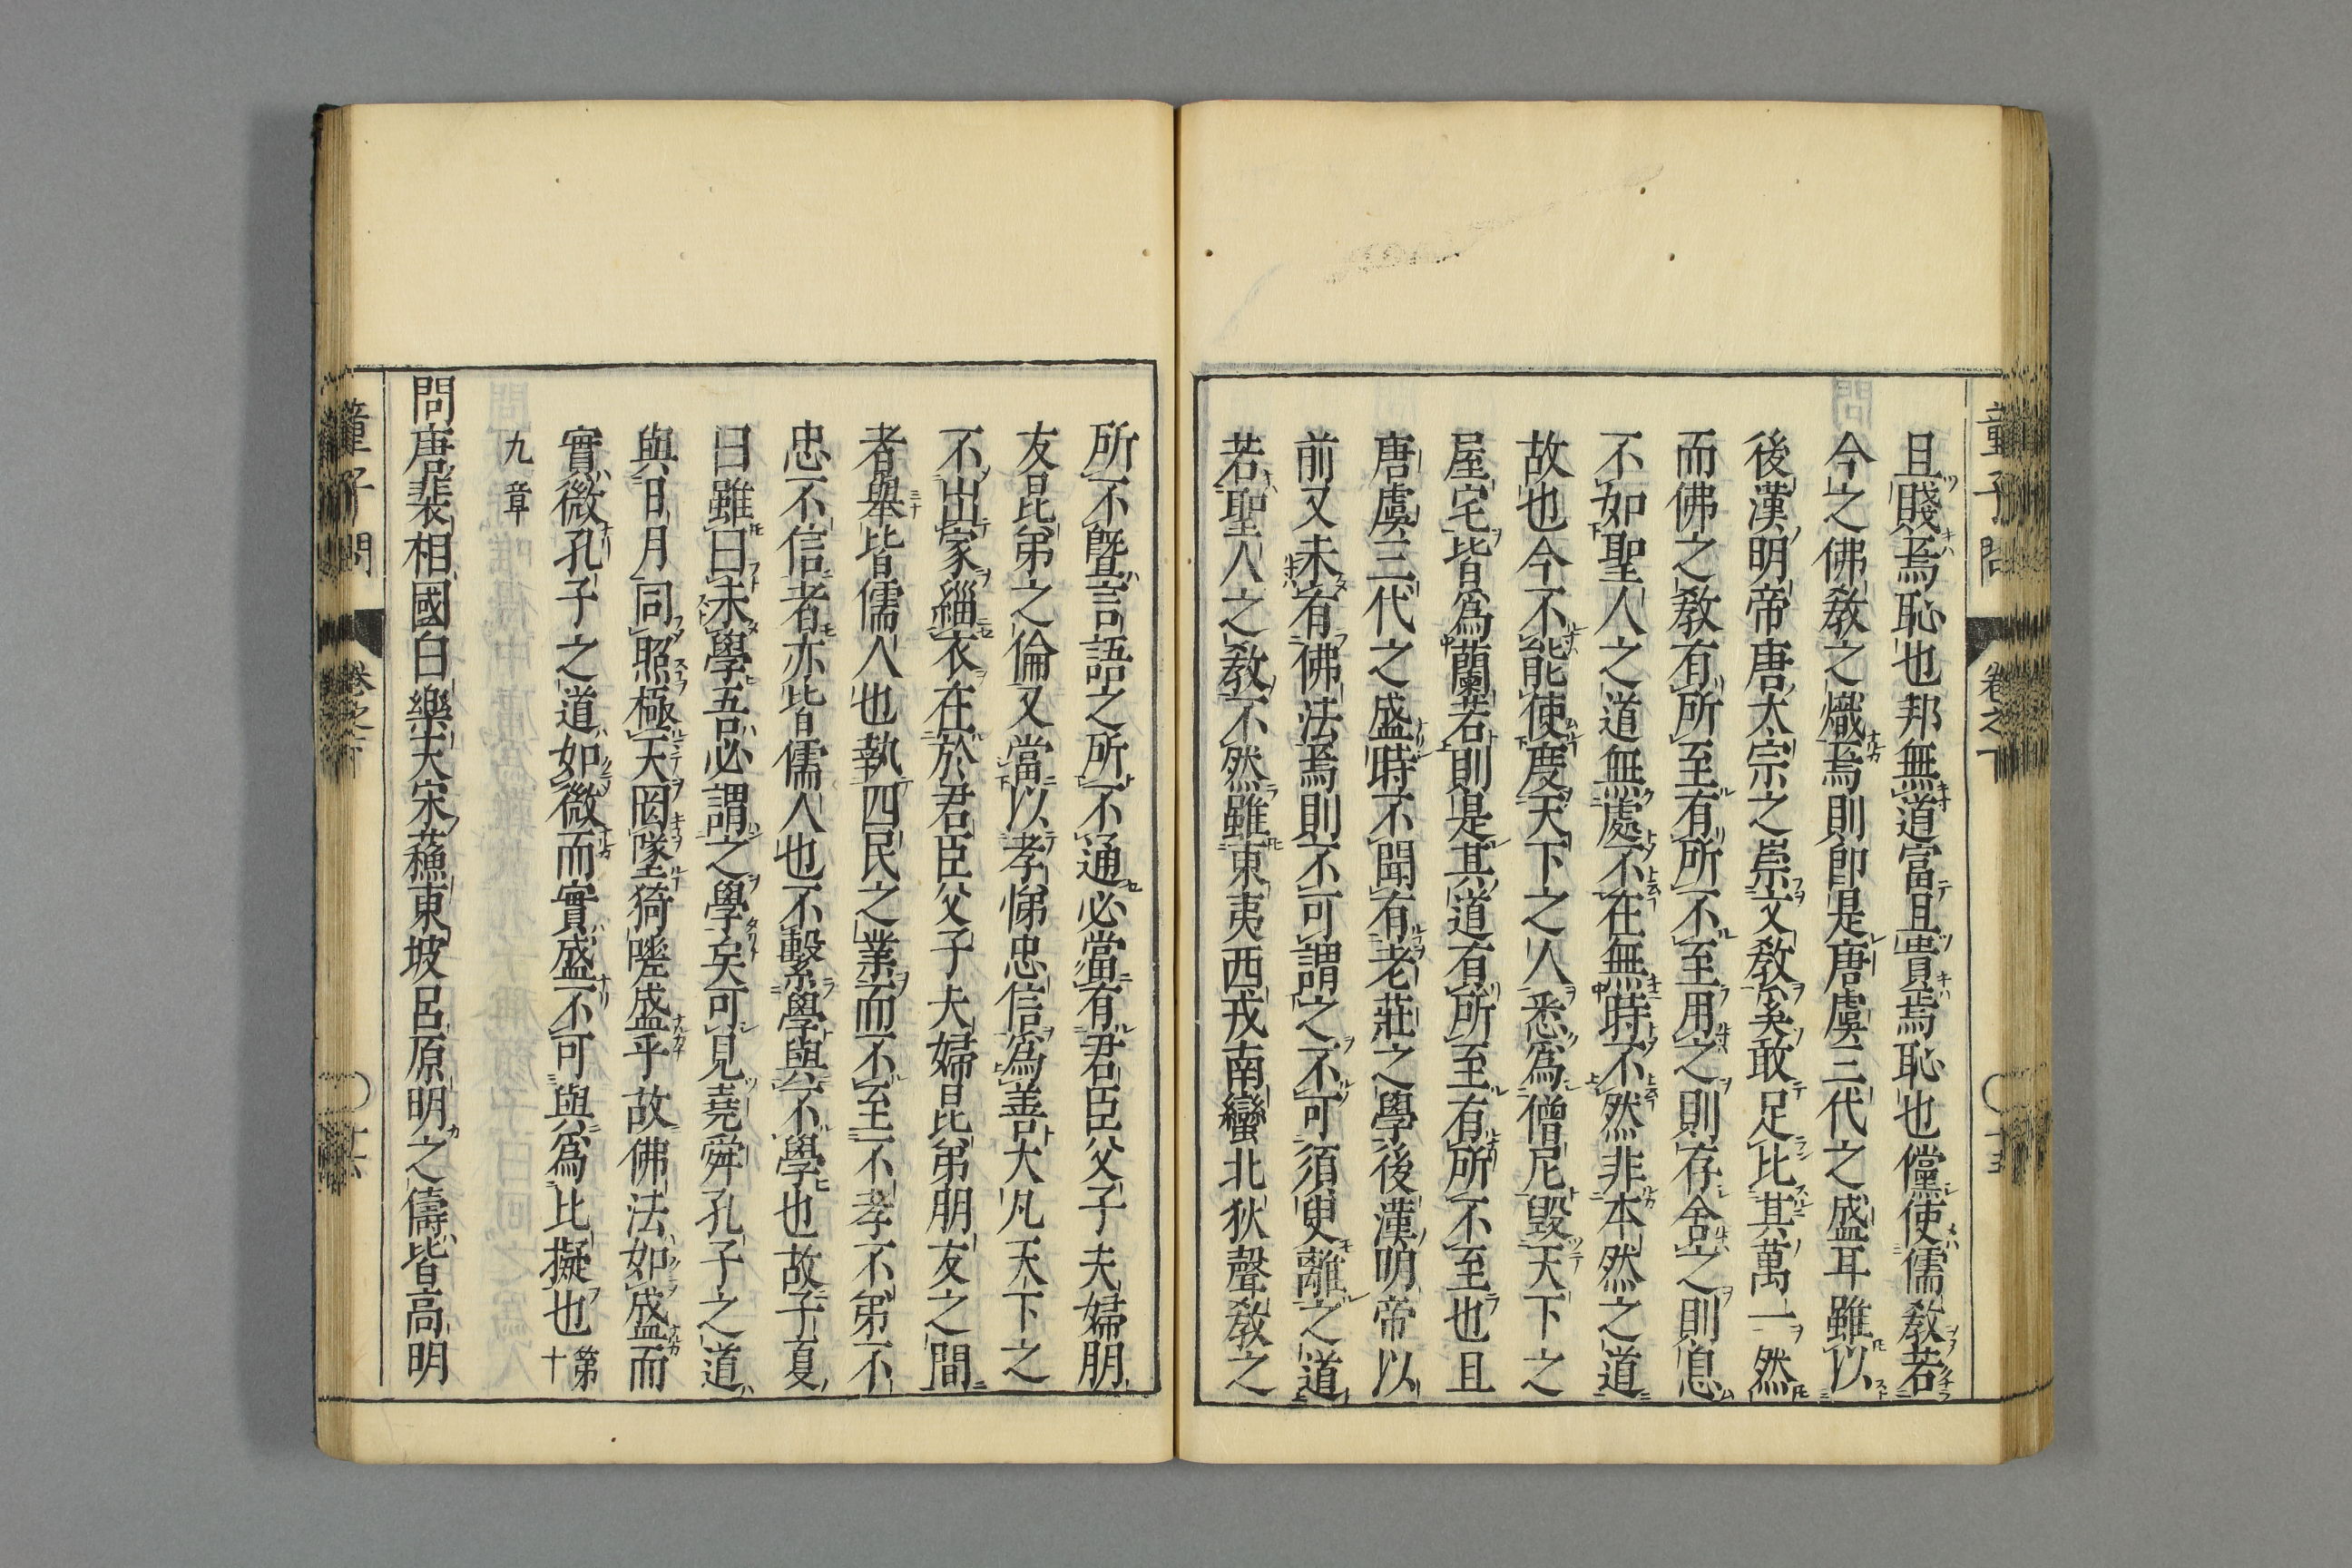 童子問 卷之下
且賤焉恥也邦無道富且貴焉恥也儻使儒教若
今之佛教之熾焉則即是唐虞三代之盛耳雖以
後漢明帝唐太宗之崇文教奚敢足比其萬一然
而佛之教有所至有所不至用之則存舍之則息
不如聖人之道無處不在無時不然非本然之道
故也今不能使慶天下之人悉爲僧尼毀天下之
屋宅皆爲蘭若則是其道有所至有所不至也且
唐虞三代之盛時不聞有老莊之學後漢明帝以
前又未有佛法焉則不可謂之不可須臾離之道
若聖人之教不然雖東夷西戎南蠻北狄聲教之
所不曁言語之所不通必當有君臣父子夫婦朋
友昆弟之倫又當以孝悌忠信爲善大凡天下之
不出家緇衣在於君臣父子夫婦昆弟朋友之間
者舉皆儒人也執四民之業而不至不孝不弟不
忠不信者亦皆儒人也不繫學與不學也故子夏
曰雖曰未學吾必謂之學矣可見堯舜孔子之道
與日月同照極天罔墜猗嗟盛乎故佛法如盛而
實微孔子之道如微而實盛不可與爲比擬也 第十
九章
問唐裴相國白樂天宋蘓東坡呂原明之儔皆高明
童子問 卷之下